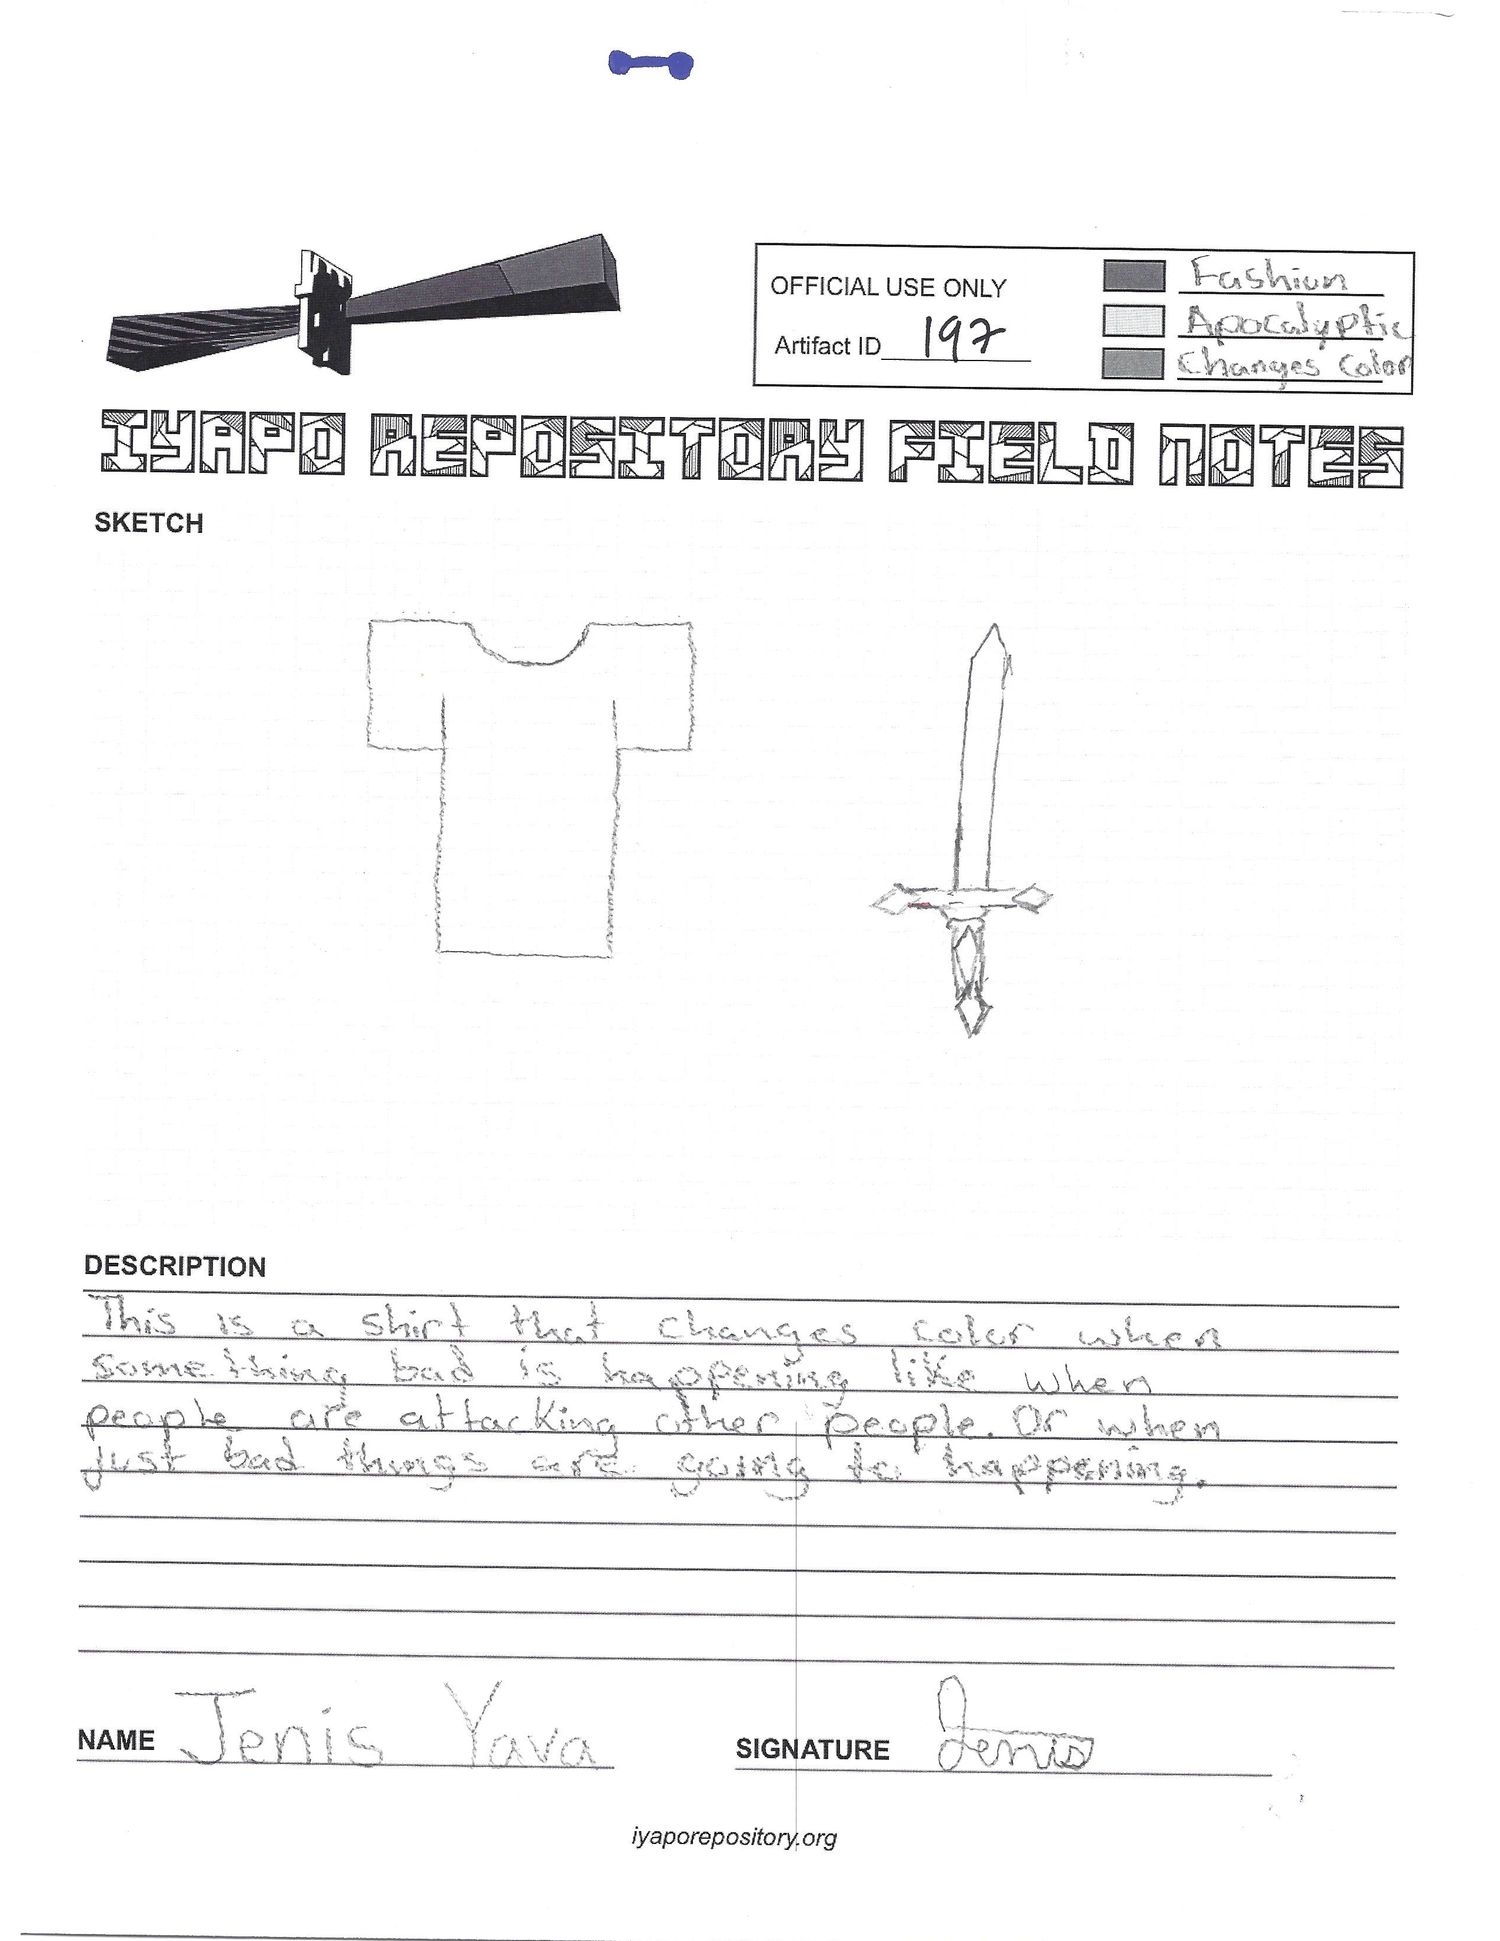 OFFICIAL USE ONLY
Artifact ID 197
Fashion
Apocalyptic
Changes Color
IYAPO REPOSITORY FIELD NOTES
SKETCH
DESCRIPTION
This is a shirt that changes color when
something bad is happening like when
people are attacking other people. Or when
just bad things are going to happening.
NAME Jenis Yava
SIGNATURE Jenis
iyaporepository.org